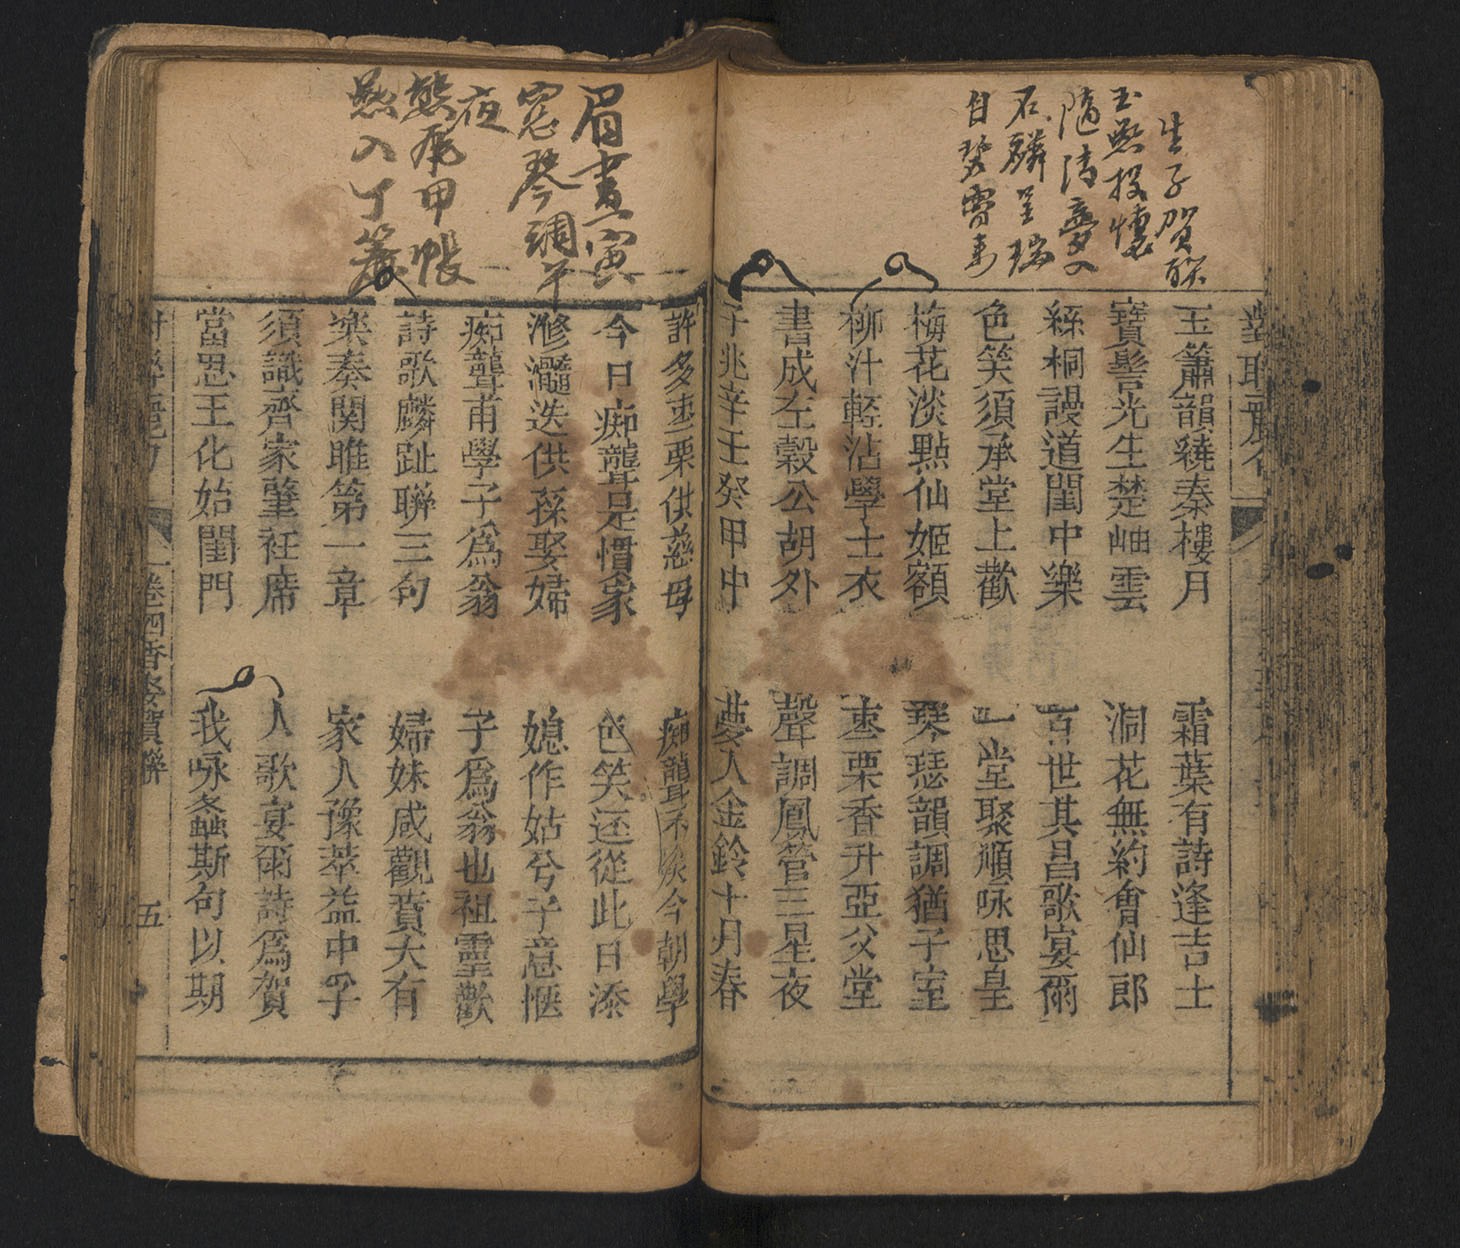 生子賀聯
玉燕投懷
隨清夢入
石麟呈瑞
自雲來
玉簫韻繞秦樓月
霜葉有詩逢吉士
寶髻光生楚岫雲
洞花無約會仙郎
絲桐謾道閨中樂
百世其昌歌宴爾
色笑須承堂上歡
一堂聚順咏思皇
梅花淡點仙姬額
琴瑟韻調猶子室
柳汁輕沾學士衣
棗栗香升亞父堂
書成左穀公胡外
聲調鳳管三星夜
子兆辛壬癸甲中
夢入金鈴十月春
眉畫寅
窓琴調子
夜
熊尾甲帳
燕入丁簾
許多棗栗供慈母
痴聾不
今朝學
今日痴聾是慣家
色笑还從此日添
滫瀡迭供孫娶婦
媳作姑兮子意愜
痴聾甫學子爲翁
子爲翁也祖靈歡
詩歌麟趾聯三句
婦妹咸觀賁大有
樂奏関雎第一章
家人豫萃益中孚
須識齊家肇衽席
人歌宴爾詩爲賀
當思王化始閨門
我咏螽斯句以期
卷四香娶賀聯
五